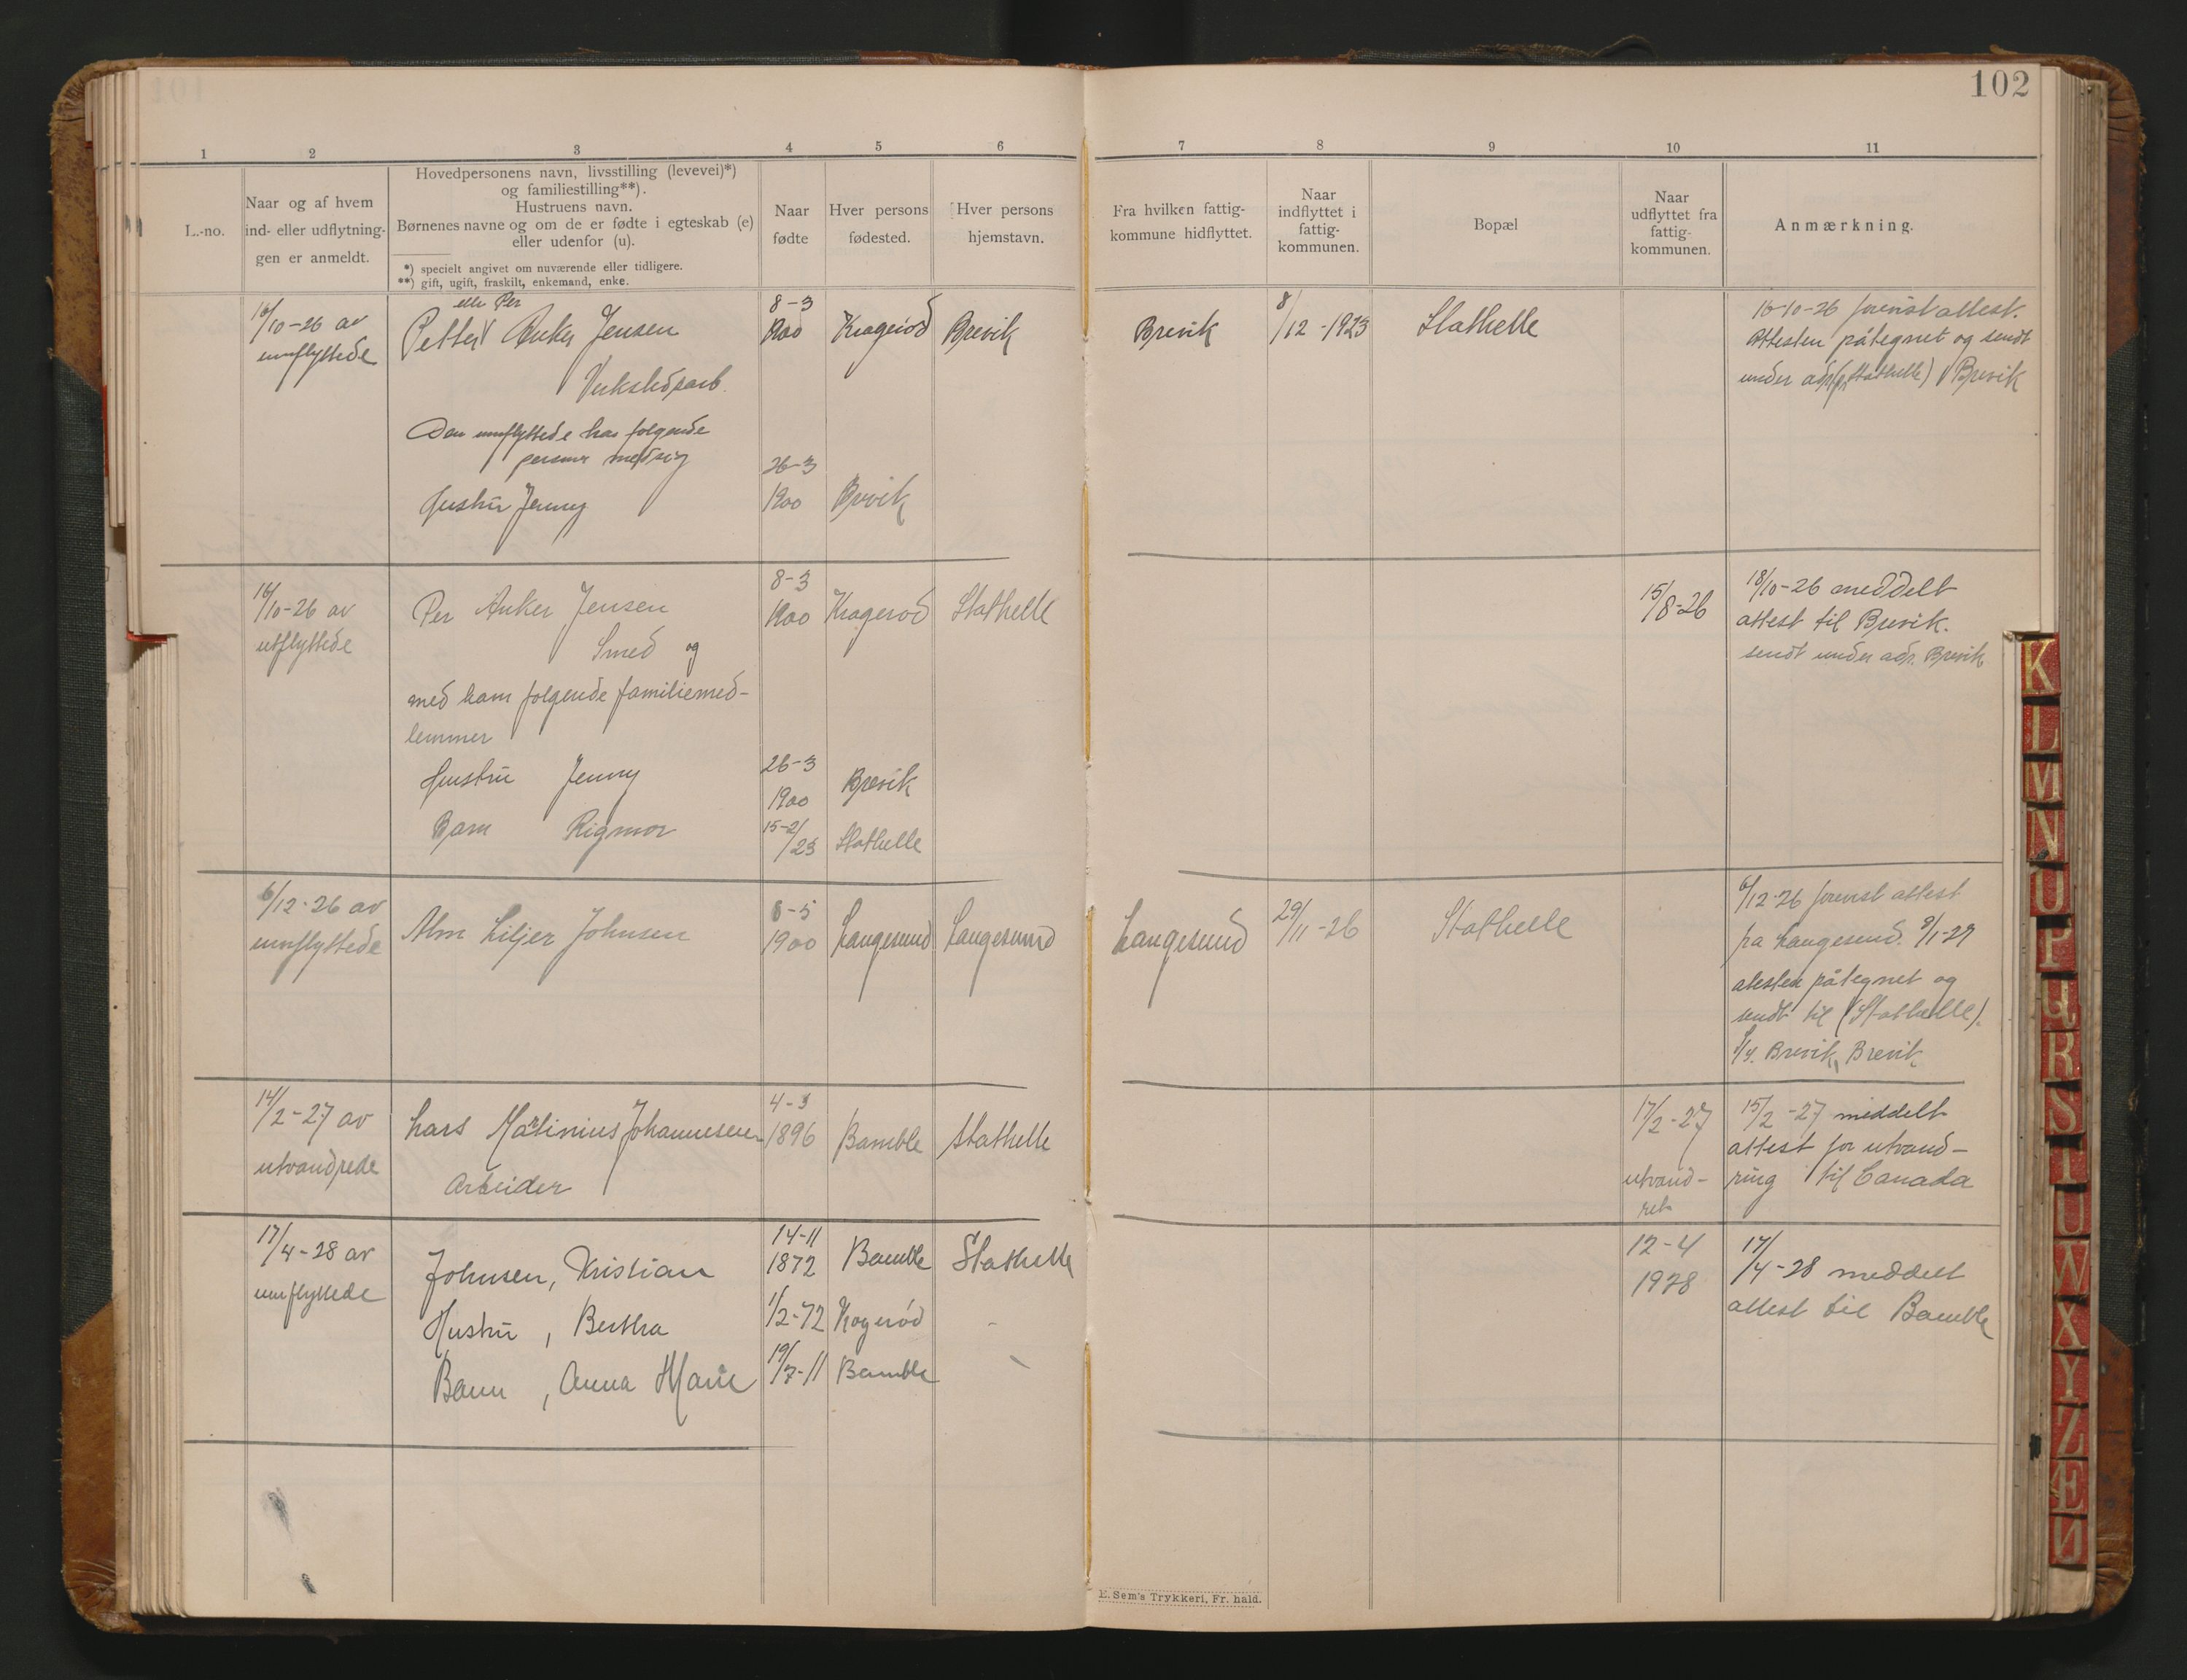 102
1 2 3 4 5 6 7 8 9 10 11
L.-no.
Naar og af hvem
ind- eller udflytnin-
gen er anmeldt.
Hovedpersonens navn, livsstilling (levevei)*)
og familiestilling**).
Hustruens navn.
Børnenes navne og om de er fødte i egteskab (e)
eller udenfor (u).
*) specielt angivet om nuværende eller tidligere.
**) gift, ugift, fraskilt, enkemand, enke.
Naar
fødte
Hver persons
fødested.
Hver persons
hjemstavn.
Fra hvilken fattig-
kommune hidflyttet.
Naar
indflyttet i
fattig-
kommunen.
Bopæl
Naar
udflyttet fra
fattig-
kommunen.
Anmærkning.
16/10-26 av
innflyttede
eller Per
Petter Anker Jensen
Verkstedsarb.
Den innflyttede har følgende
personer med sig
Hustru Jenny
8-3
1900
26-3
1900
Kragerød
Brevik
Brevik
Brevik
8/12-1923
Stathelle
16-10-26 forevist attest.
Attesten påtegnet og sendt
under adr. (Stathelle) Brevik
16/10-26 av
utflyttede
Per Anker Jensen
Smed og
med ham følgende familiemed-
lemmer
Hustru Jenny
Barn Rigmor
8-3
1900
26-3
1900
15-2/23
Kragerød
Brevik
Stathelle
Stathelle
15/8-26
18/10-26 meddelt
attest til Brevik.
sendt under adr. Brevik
6/12-26 av
innflyttede
Alm Liljer Johnsen
6-5
1900
Langesund
Langesund
Langesund
29/11-26
Stathelle
6/12-26 forevist attest
fra Langesund. 9/1-27
atesten påtegnet og
sendt til (Stathelle).
Brevik, Brevik
14/2-27 av
utvandrede
Lars Martinius Johannesen
Arbeider
4-3
1896
Bamble
Stathelle
17/2-27
utvand-
ret
15/2-27 meddelt
attest for utvand-
ring til Canada
17/4-28 av
innflyttede
Johnsen, Kristian
Hustru, Bertha
Barn, Anna Marie
14-11
1872
1/2-72
19/7-11
Bamble
Kogerød
Bamble
Stathelle
12-4
1928
17/4-28 meddelt
attest til Bamble
E. Sem's Trykkeri, Fr. hald.
K
L
M
N
O
P
Q
R
S
T
U
W
X
Y
Z
Æ